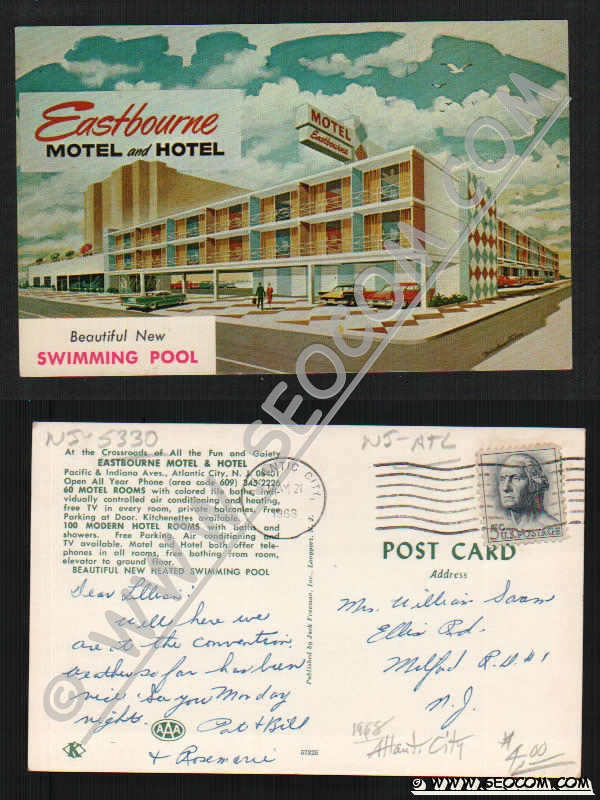 Eastbourne
MOTEL and HOTEL
MOTEL
Eastbourne
Beautiful New
SWIMMING POOL
© WWW.SEOCOM.COM
NJ-5330
NJ-ATL
At the Crossroads of All the Fun and Gaiety
EASTBOURNE MOTEL & HOTEL
Pacific & Indiana Aves., Atlantic City, N. J. 08401
Open All Year Phone (area code 609) 343-2226
60 MOTEL ROOMS with colored tile baths, indi-
vidually controlled air conditioning and heating,
free TV in every room, private balconies, Free
Parking at Door. Kitchenettes available.
100 MODERN HOTEL ROOMS with baths and
showers. Free Parking. Air conditioning and
TV available. Motel and Hotel both offer tele-
phones in all rooms, free bathing from room,
elevator to ground floor.
BEAUTIFUL NEW HEATED SWIMMING POOL
ANTIC CITY,
21
1968
5¢ U.S. POSTAGE
POST CARD
Address
Published by Jack Freeman, Inc., Longport, N. J.
Dear Lillian!
Well here we
are at the convention.
Weather so far has been
nice. See you Monday
night.
Pat & Bill
& Rosemarie
AAA
K
57225
Mrs. William
Ellis Rd.
Milford R.D. #1
N.J.
1968
Atlantic City
$4.00
© WWW.SEOCOM.COM